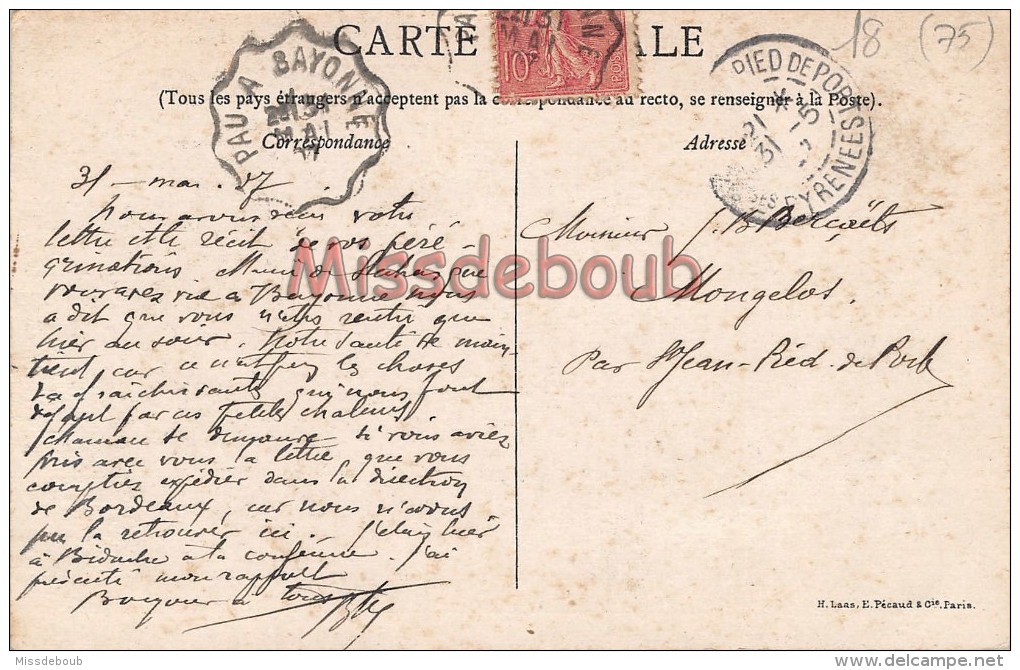 CARTE ALE
18 (75)
(Tous les pays étrangers n'acceptent pas la correspondance au recto, se renseigner à la Poste).
Correspondance
Adresse
PAU A BAYONNE
31
MAI
10
POSTES
PIED DE PORT
21
31
PYRENEES
31 - mai . 07
Nous avons reçu votre
lettre et le récit de vos péré-
grinations. que
vous avez vue à Bayonne nous
a dit que vous n'êtes rentré que
hier au soir. Notre santé se main-
tient, car ce n'est pas les choses
rafraichissantes qui nous font
défaut par ces petites chaleurs.
Maman se demande si vous aviez
pris avec vous la lettre que vous
comptiez expédier dans la direction
de Bordeaux, car nous n'avons
pu la retrouver ici. J'étais hier
à Bidache à la conférence. J'ai
présenté mon rapport
Bonjour à tous
Monsieur J. B.
Mongelos.
Par St Jean-Pied-de-Port
Missdeboub
H. Laas, E. Pécaud & Cie. Paris.
Missdeboub
delcampe.net